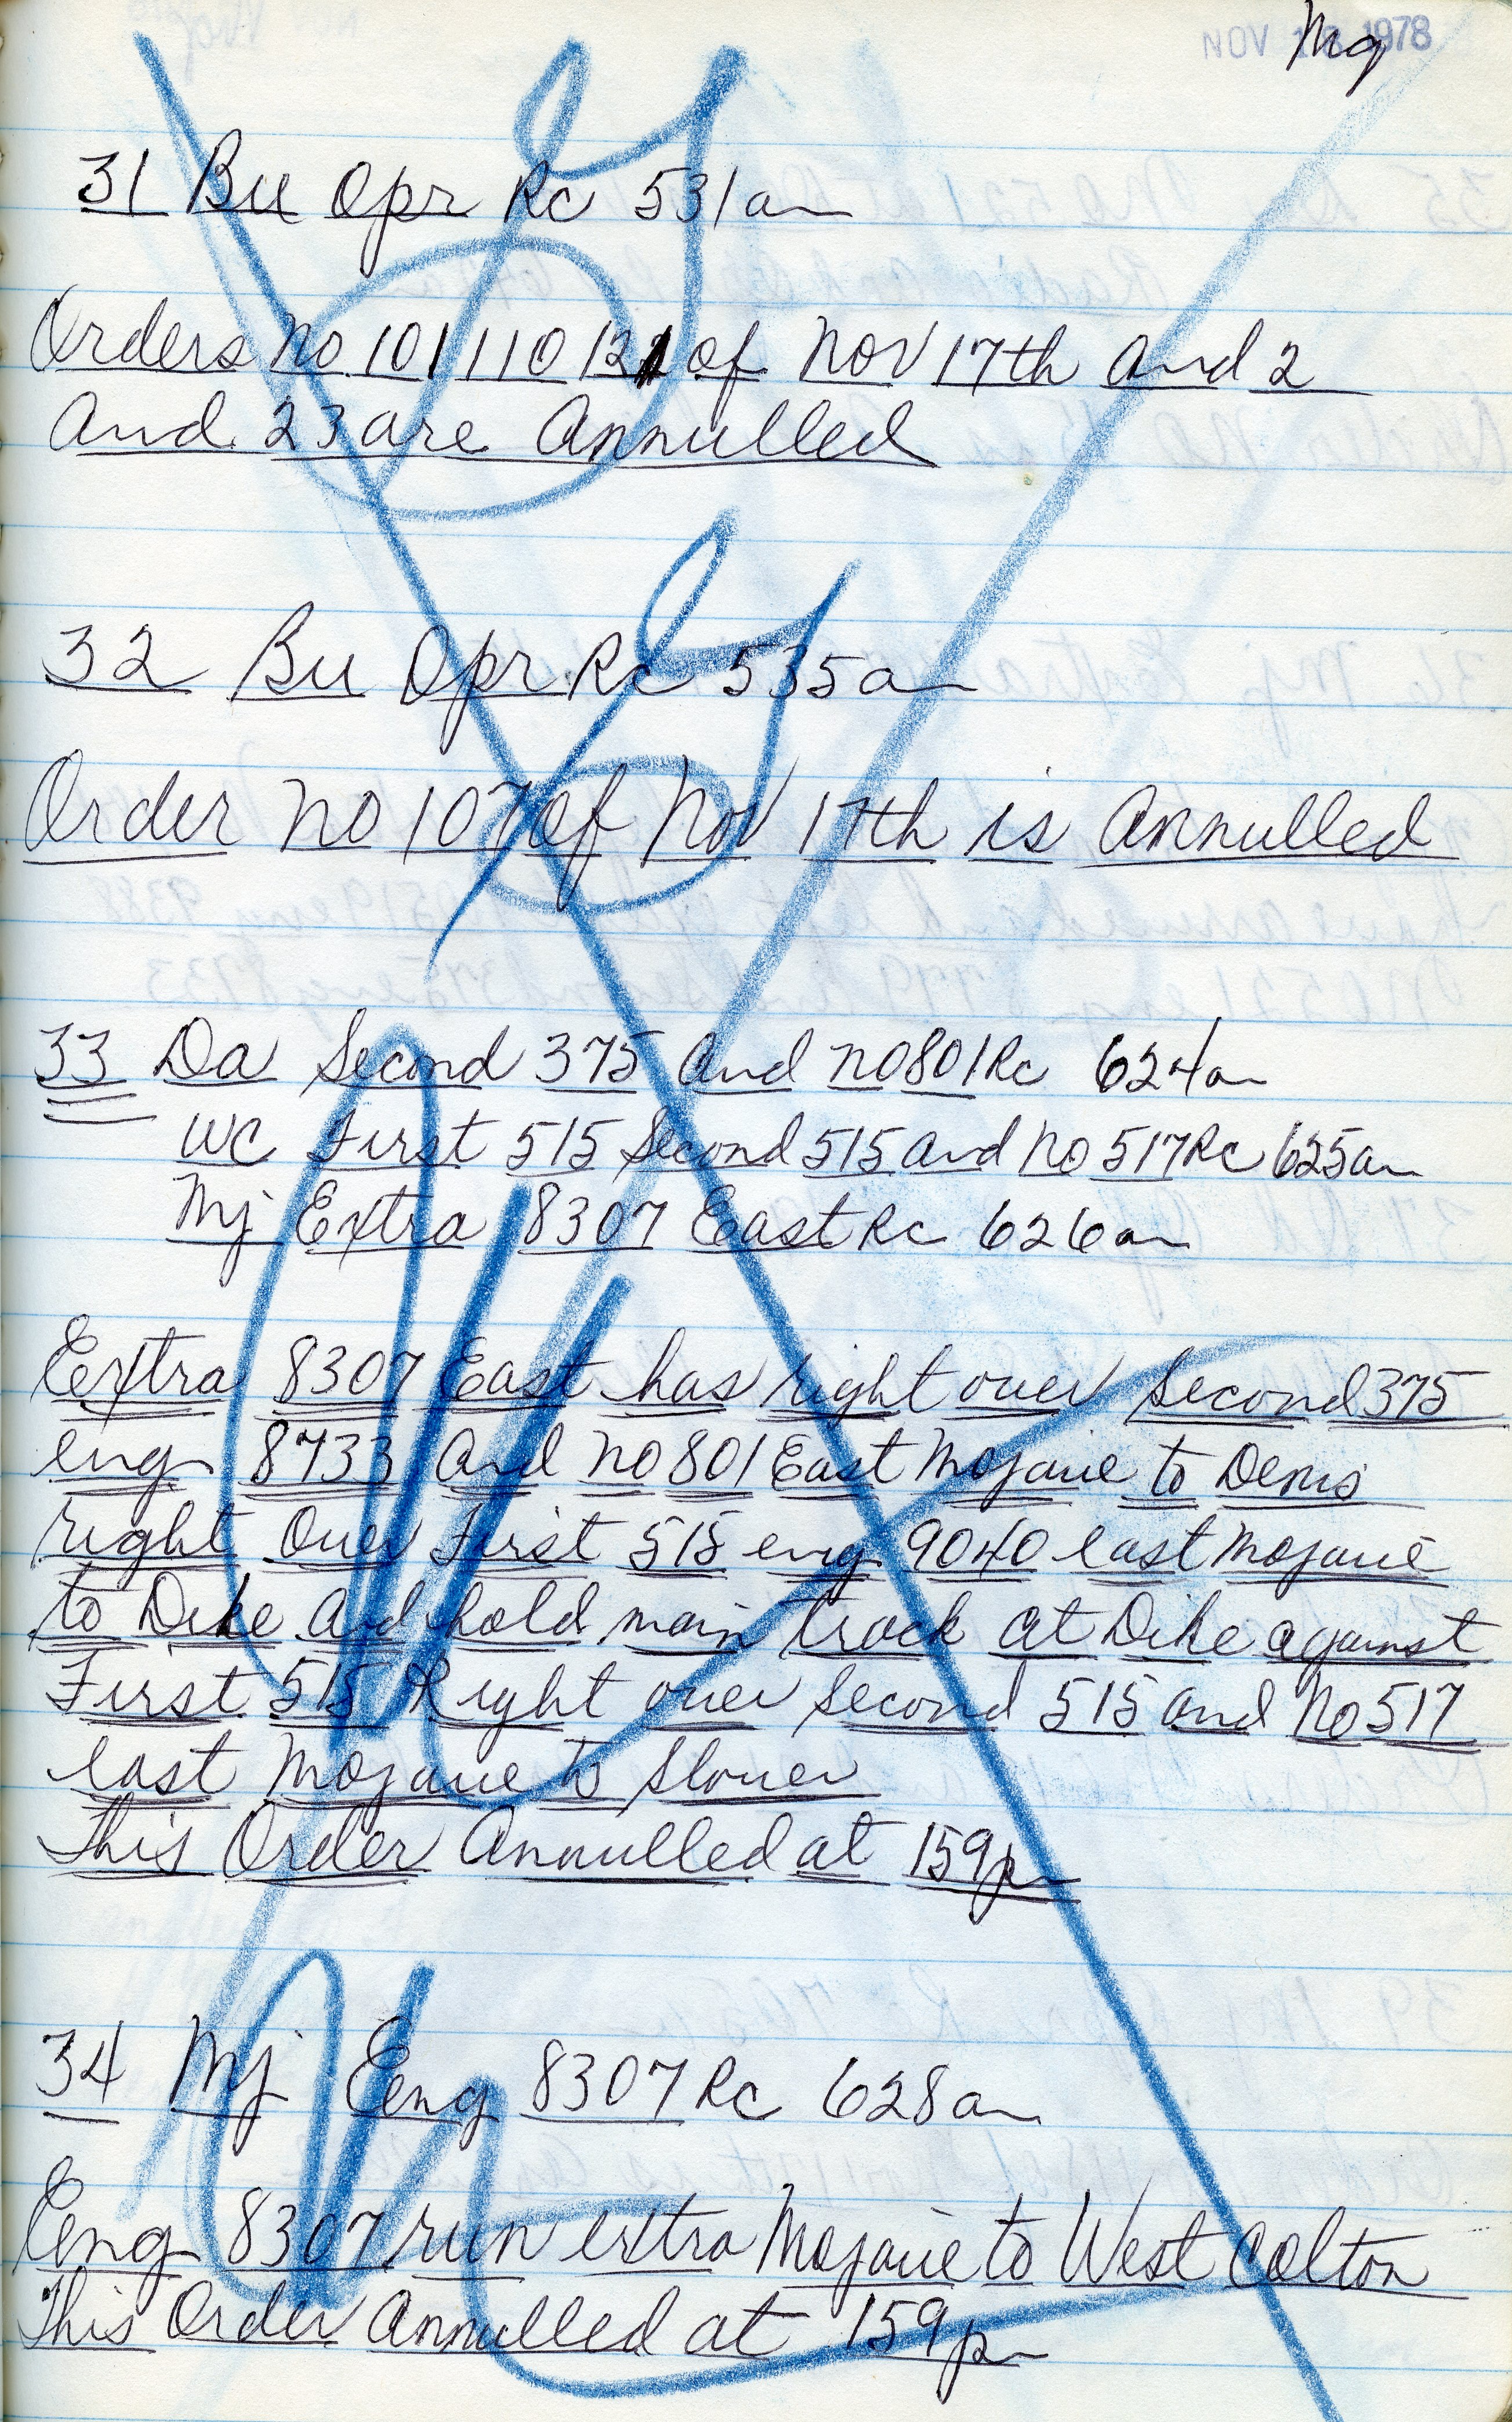 NOV 18 1978 Mq
31 Bu Opr Rc 531am
Orders No 101 110 121 of Nov 17th and 2
and 23 are Annulled
32 Bu Opr Rc 535am
Order No 107 of Nov 17th is Annulled
33 Da Second 375 and No 801 Rc 624am
WC First 515 Second 515 and No 517 Rc 625am
Mj Extra 8307 East Rc 626am
Extra 8307 East has right over Second 375
eng 8733 and No 801 East Mojave to Denis
right over First 515 eng 9040 east Mojave
to Dike and hold main track at Dike against
First 515 Right over Second 515 and No 517
east Mojave to Slover
This Order Annulled at 159pm
34 Mj Eeng 8307 Rc 628am
Eeng 8307 run extra Mojave to West Colton
This Order Annulled at 159pm